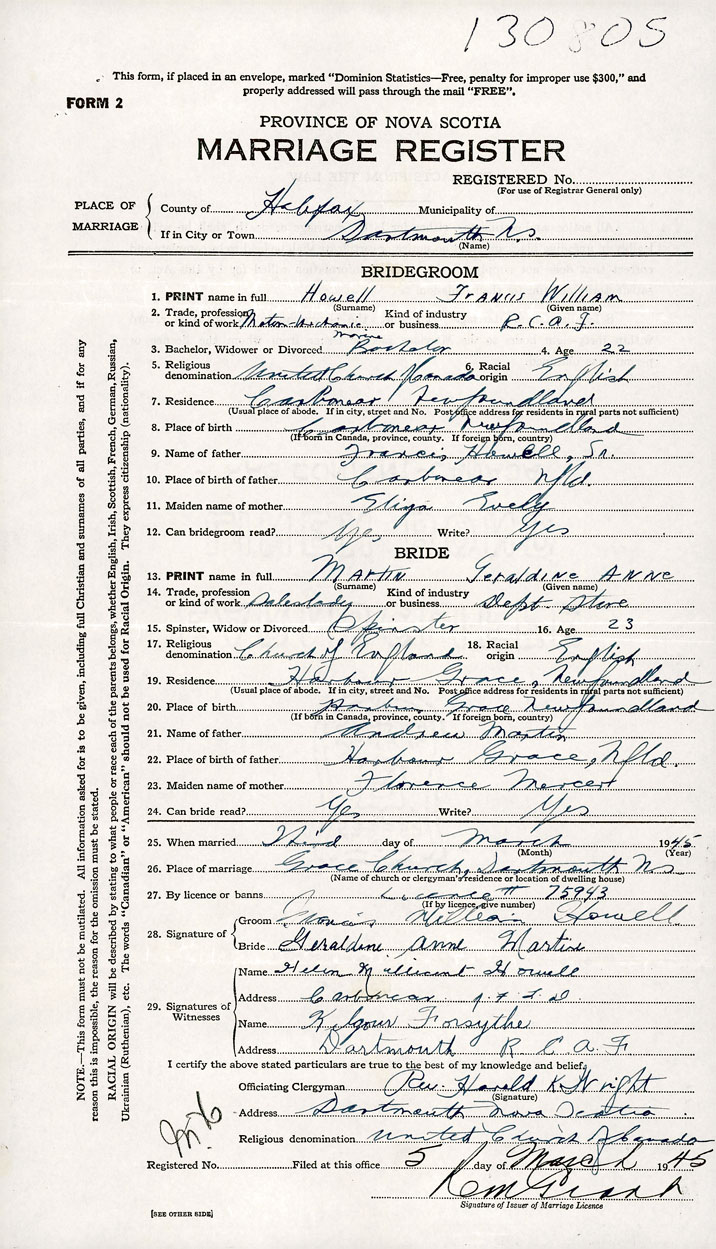 130805
This form, if placed in an envelope, marked "Dominion Statistics—Free, penalty for improper use $300," and
properly addressed will pass through the mail "FREE".
FORM 2
PROVINCE OF NOVA SCOTIA
MARRIAGE REGISTER
REGISTERED No.
(For use of Registrar General only)
PLACE OF MARRIAGE
County of Halifax Municipality of
If in City or Town Dartmouth N.S.
(Name)
BRIDEGROOM
1. PRINT name in full Howell Francis William
(Surname) (Given name)
2. Trade, profession or kind of work Motor Mechanic Marine Kind of industry or business R.C.A.F.
3. Bachelor, Widower or Divorced Bachelor 4. Age 22
5. Religious denomination United Church of Canada 6. Racial origin English
7. Residence Carbonear Newfoundland
(Usual place of abode. If in city, street and No. Post office address for residents in rural parts not sufficient)
8. Place of birth Carbonear Newfoundland
(If born in Canada, province, county. If foreign born, country)
9. Name of father Francis Howell, Sr.
10. Place of birth of father Carbonear Nfld.
11. Maiden name of mother Eliza Evely
12. Can bridegroom read? Yes Write? Yes
BRIDE
13. PRINT name in full Martin Geraldine Anne
(Surname) (Given name)
14. Trade, profession or kind of work Saleslady Kind of industry or business Dept. Store
15. Spinster, Widow or Divorced Spinster 16. Age 23
17. Religious denomination Church of England 18. Racial origin English
19. Residence Harbour Grace, Newfoundland
(Usual place of abode. If in city, street and No. Post office address for residents in rural parts not sufficient)
20. Place of birth Harbour Grace Newfoundland
(If born in Canada, province, county. If foreign born, country)
21. Name of father Andrew Martin
22. Place of birth of father Harbour Grace, Nfld.
23. Maiden name of mother Florence Mercer
24. Can bride read? Yes Write? Yes
25. When married Third day of March 1945
(Month) (Year)
26. Place of marriage Grace Church, Dartmouth N.S.
(Name of church or clergyman's residence or location of dwelling house)
27. By licence or banns Licence # 75943
(If by licence, give number)
28. Signature of
Groom Francis William Howell
Bride Geraldine Anne Martin
29. Signatures of Witnesses
Name Helen Millicent Howell
Address Carbonear N.F.L.D
Name Kilgour Forsythe
Address Dartmouth R C A F
I certify the above stated particulars are true to the best of my knowledge and belief.
Officiating Clergyman Rev. Harold K. Wright
(Signature)
Address Dartmouth Nova Scotia
Religious denomination United Church of Canada
Registered No. Filed at this office 5 day of March 1945
Signature of Issuer of Marriage Licence
[SEE OTHER SIDE]
NOTE.—This form must not be mutilated. All information asked for is to be given, including full Christian and surnames of all parties, and if for any
reason this is impossible, the reason for the omission must be stated.
RACIAL ORIGIN will be described by stating to what people or race each of the parents belongs, whether English, Irish, Scottish, French, German, Russian,
Ukrainian (Ruthenian), etc. The words "Canadian" or "American" should not be used for Racial Origin. They express citizenship (nationality).